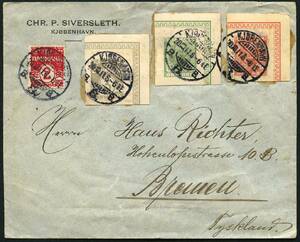 CHR. P. SIVERSLETH.
KJØBENHAVN.
KJØBENHAVN
KJØBENHAVN
Herrn Hans Richter,
Hohenlohestrasse 10 B.
Bremen
Tyskland.